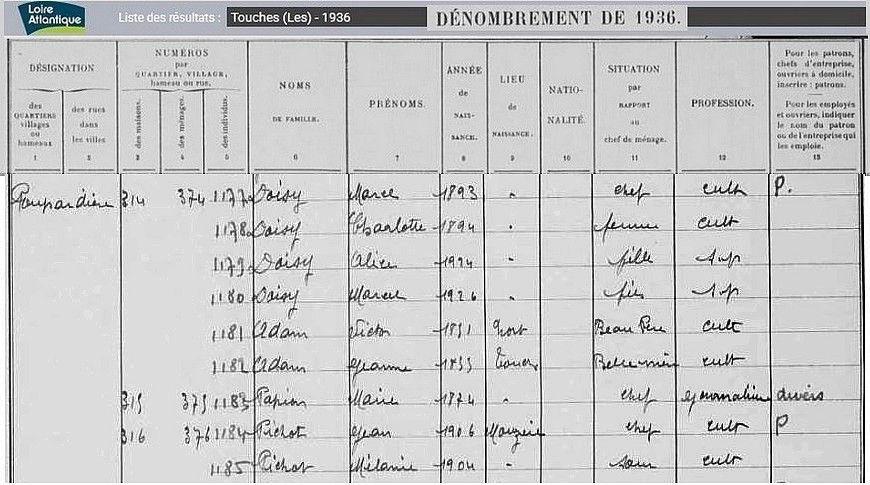 Loire Atlantique
Liste des résultats : Touches (Les) - 1936
DÉNOMBREMENT DE 1936.
DÉSIGNATION
des QUARTIERS villages ou hameaux
1
des rues dans les villes
2
NUMÉROS par QUARTIER, VILLAGE, hameau ou rue.
des maisons.
3
des ménages.
4
des individus.
5
NOMS DE FAMILLE.
6
PRÉNOMS.
7
ANNÉE de NAISSANCE.
8
LIEU de NAISSANCE.
9
NATIONALITÉ.
10
SITUATION par RAPPORT au chef de ménage.
11
PROFESSION.
12
Pour les patrons, chefs d'entreprise, ouvriers à domicile, inscrire : patrons.
Pour les employés et ouvriers, indiquer le nom du patron ou de l'entreprise qui les emploie.
13
Poupardière 314 374 1177 Doisy Marcel 1893 " chef cult P.
1178 Doisy Charlotte 1894 " femme cult
1179 Doisy Alice 1924 " fille s.p
1180 Doisy Marcel 1926 " fils s.p
1181 Adam Victor Nort Beau Père cult
1182 Adam Jeanne Touches Belle-mère cult
315 375 1183 Papion Marie 1874 " chef journalière divers
316 376 1184 Pichot Jean 1906 Mouzeil chef cult P
1185 Pichot Mélanie 1904 " sœur cult